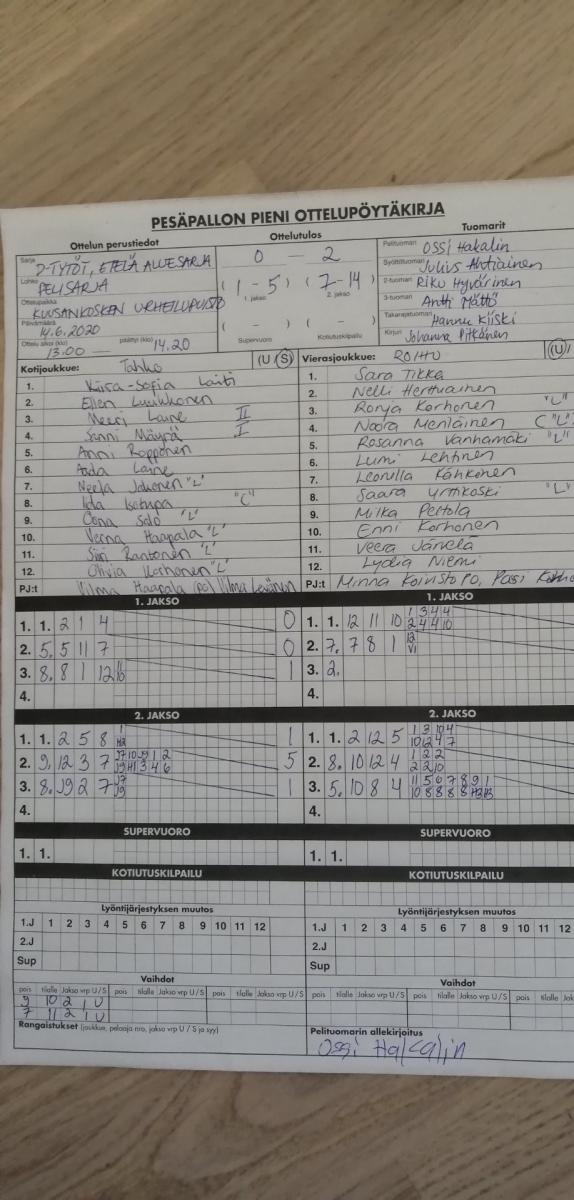 PESÄPALLON PIENI OTTELUPÖYTÄKIRJA
Ottelun perustiedot
Sarja D-TYTÖT, ETELÄ ALUESARJA
Lohko PELISARJA
Ottelupaikka KUUSANKOSKEN URHEILUPUISTO
Päivämäärä 14.6.2020
Ottelu alkoi (klo) 13.00 — päättyi (klo) 14.20
Ottelutulos
0 — 2
( 1 - 5 ) ( 7 - 14 )
1. jakso 2. jakso
( - ) ( - )
Supervuoro Kotiutuskilpailu
Tuomarit
Pelituomari Ossi Hakalin
Syöttötuomari Julius Ahtiainen
2-tuomari Riku Hyvärinen
3-tuomari Antti Mättö
Takarajatuomari Hannu Kiiski
Kirjuri Johanna Pitkänen
Kotijoukkue: Tahko (U/S)
1. Kiira-Sofia Laiti
2. Ellen Luukkonen
3. Meeri Laine II
4. Sanni Mäyrä I
5. Anni Ropponen
6. Aada Laine
7. Neela Jokonen "L"
8. Iida Isotupa "C"
9. Oona Salo "L"
10. Verna Haapala "L"
11. Siiri Rantonen "L"
12. Olivia Korhonen "L"
PJ:t Vilma Haapala (PO), Vilma Levänen
Vierasjoukkue: ROIHU (U/
1. Sara Tikka
2. Nelli Herttuainen
3. Ronja Korhonen "L"
4. Noora Mentlainen C "L"
5. Rosanna Vanhamäki "L"
6. Lumi Lehtinen
7. Leonilla Kähkönen
8. Saara Yrttikoski "L"
9. Milka Pertola
10. Enni Korhonen
11. Veera Järvelä
12. Lydia Niemi
PJ:t Minna Koivisto PO, Pasi
1. JAKSO
1. 1. 2 1 4 0
2. 5. 5 11 7 0
3. 8. 8 1 12 11/10 1
4.
1. JAKSO
1. 1. 12 11 10 1/2 3/4 4/4 4/10
2. 7. 7 8 1 12/VI
3. 2.
4.
2. JAKSO
1. 1. 2 5 8 1
2. 9. 12 3 7 5
3. 8. J9 2 7 J7/J9 1
4.
2. JAKSO
1. 1. 2 12 5 1/10 3/12 10/4 4/7
2. 8. 10 12 4 1/2 2/2 2/10
3. 5. 10 8 4 11/10 5/8 6/8 7/8 8/8
4.
SUPERVUORO
1. 1.
SUPERVUORO
1. 1.
KOTIUTUSKILPAILU
KOTIUTUSKILPAILU
Lyöntijärjestyksen muutos
1.J 1 2 3 4 5 6 7 8 9 10 11 12
2.J
Sup
Lyöntijärjestyksen muutos
1.J 1 2 3 4 5 6 7 8 9 10 11 12
2.J
Sup
Vaihdot
pois tilalle Jakso vrp U/S pois tilalle Jakso vrp U/S pois tilalle Jakso vrp U/S
9 10 2 1 U
7 11 2 1 U
Vaihdot
pois tilalle Jakso vrp U/S pois tilalle Jakso vrp U/S pois tilalle
Rangaistukset (joukkue, pelaaja nro, jakso vrp U / S ja syy)
Pelituomarin allekirjoitus
Ossi Hakalin